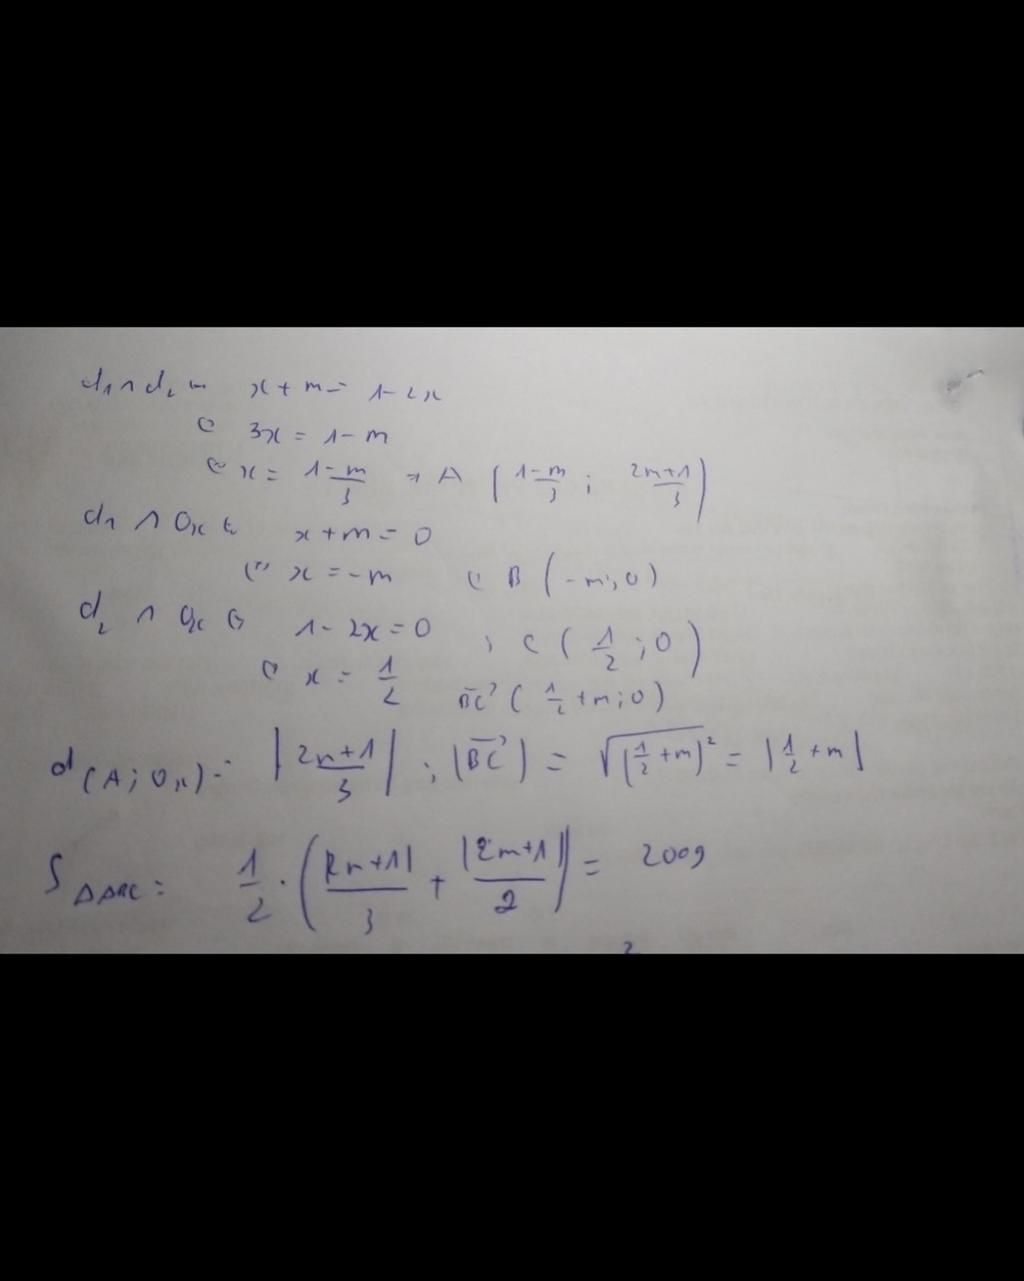 d₁ ∩ d₂ x + m = 1 - 2x
3x = 1 - m
x = (1-m)/3 ⇒ A ( (1-m)/3 ; (2m+1)/3 )
d₁ ∩ Ox x + m = 0
x = -m B ( -m ; 0 )
d₂ ∩ Ox 1 - 2x = 0 ; C ( 1/2 ; 0 )
x = 1/2 BC→ ( 1/2 + m ; 0 )
d(A ; Ox) = | (2m+1)/3 | ; |BC→| = √(1/2 + m)² = | 1/2 + m |
S ΔABC = 1/2 . ( |2m+1|/3 + |2m+1|/2 ) = 2009